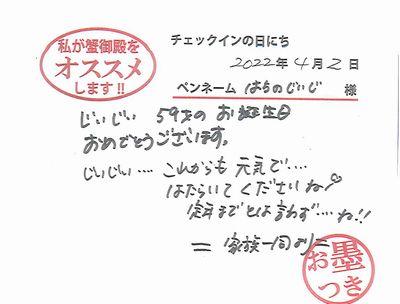 私が蟹御殿を
オススメ
します!!
チェックインの日にち
2022年4月2日
ペンネーム はちのじいじ 様
じいじい 59才の お誕生日
おめでとうございます。
じいじい‥‥ これからも 元気で‥‥
はたらいてくださいね♡
定年までとは言わず‥‥ね!!
= 家族一同より=
お墨
つき